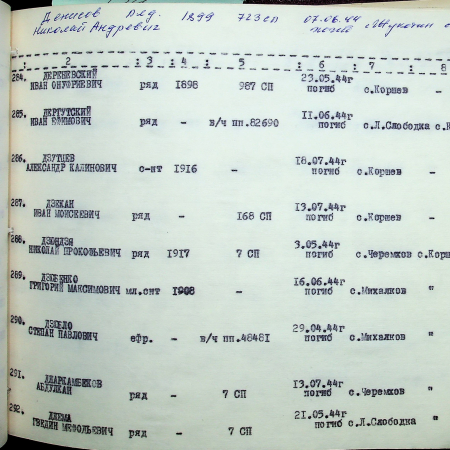 Денисов Ряд. 1899 723 сп 07.06.44
Николай Андреевич погиб
: 2 : 3 : 4 : 5 : 6 : 7 : 8
284. ДЕРЕНЕВСКИЙ 23.05.44г
ИВАН ОНУФРИЕВИЧ ряд 1898 987 СП погиб с.Корнев -
285. ДЕРГУТСКИЙ 11.06.44г
ИВАН ЕФИМОВИЧ ряд - в/ч пп.82690 погиб с.Л.Слободка
286. ДЗУТЦЕВ 18.07.44г
АЛЕКСАНДР КАЛИНОВИЧ с-нт 1916 - погиб с.Корнев -
287. ДЗЕКАН 13.07.44г
ИВАН МОИСЕЕВИЧ ряд - 168 СП погиб с.Корнев -
288. ДЗЮНДЗЯ 3.05.44г
НИКОЛАЙ ПРОКОПЬЕВИЧ ряд 1917 7 СП погиб с.Черемхов
289. ДЗЮБЕНКО 16.06.44г
ГРИГОРИЙ МАКСИМОВИЧ мл.снт 1908 - погиб с.Михалков "
290. 29.04.44г
СТЕПАН ПАВЛОВИЧ ефр. - в/ч пп.48481 погиб с.Михалков "
291. ДЖАРКАМБЕКОВ 13.07.44г
АБДУЛКАН ряд - 7 СП погиб с.Черемхов "
292. ДЖЕМА 21.05.44г
ряд - 7 СП погиб с.Л.Слободка "